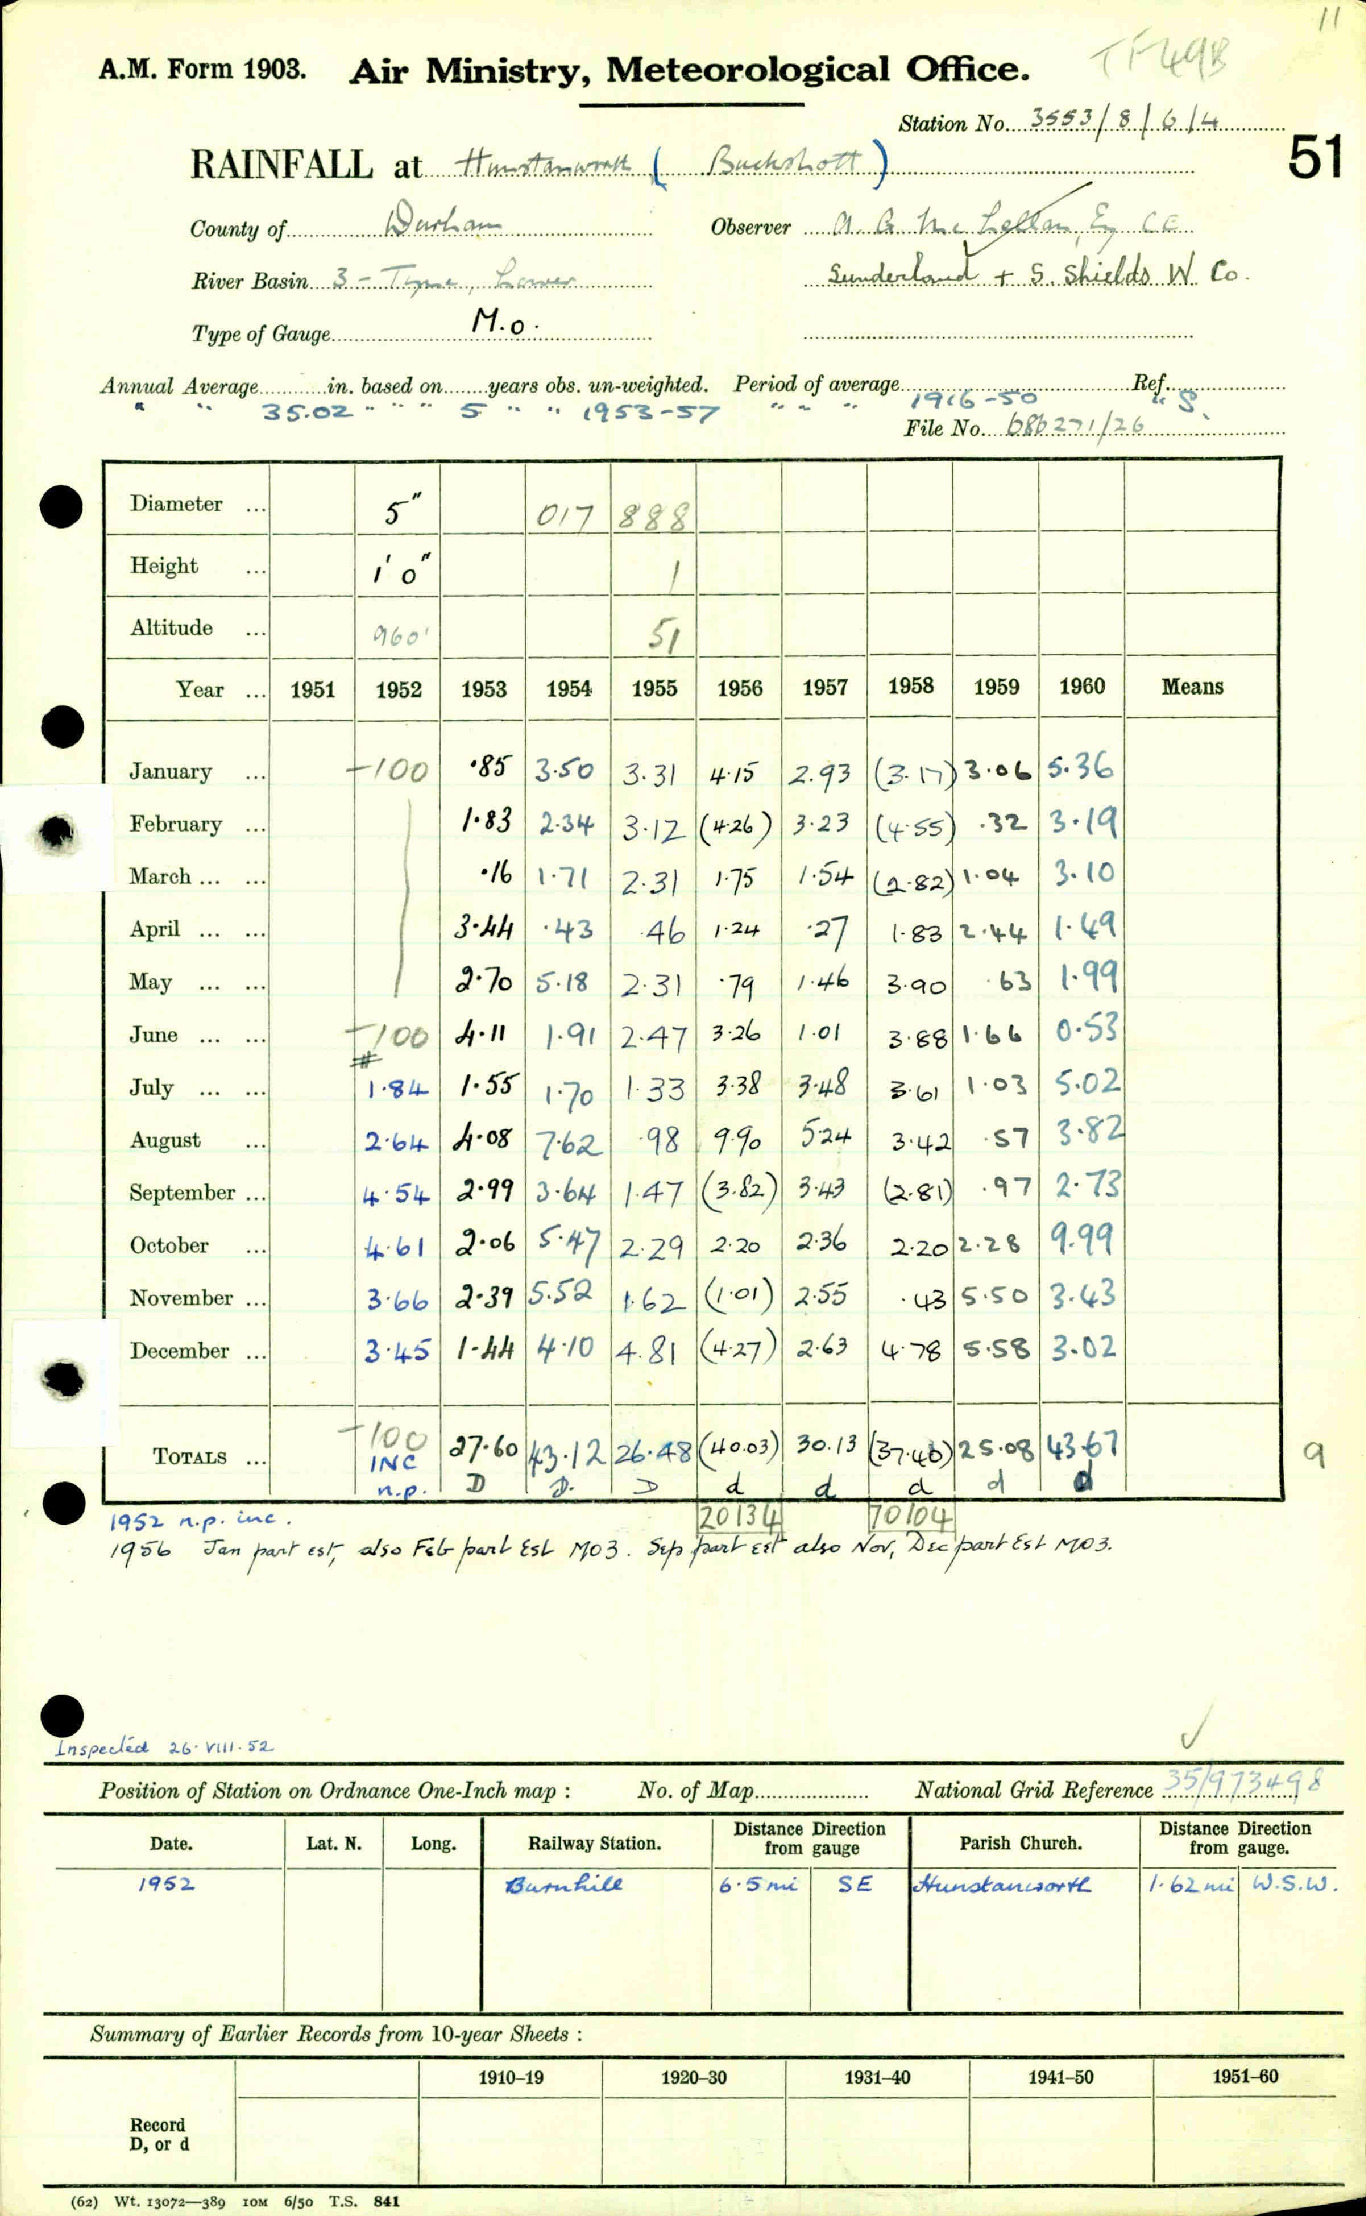 11
A.M. Form 1903. Air Ministry, Meteorological Office. TF49B
Station No. 3553/8/6/4
51
RAINFALL at Hunstanworth (Buckshott)
County of Durham Observer
River Basin 3 - Tyne, Lower Sunderland + S. Shields W. Co.
Type of Gauge M.O.
Annual Average in. based on years obs. un-weighted. Period of average Ref.
" " 35.02 " " " 5 " " 1953-57 " " " 1916-50 " S.
File No.
Diameter ... 5" 017 888
Height ... 1' 0" 1
Altitude ... 960' 51
Year ... 1951 1952 1953 1954 1955 1956 1957 1958 1959 1960 Means
January ... -100 .85 3.50 3.31 4.15 2.93 (3.17) 3.06 5.36
February ... 1.83 2.34 3.12 (4.26) 3.23 (4.55) .32 3.19
March ... ... .16 1.71 2.31 1.75 1.54 (2.82) 1.04 3.10
April ... ... 3.44 .43 .46 1.24 .27 1.83 2.44 1.49
May ... ... 2.70 5.18 2.31 .79 1.46 3.90 .63 1.99
June ... ... -100 4.11 1.91 2.47 3.26 1.01 3.88 1.66 0.53
July ... ... # 1.84 1.55 1.70 1.33 3.38 3.48 3.61 1.03 5.02
August ... 2.64 4.08 7.62 .98 9.90 5.24 3.42 .57 3.82
September ... 4.54 2.99 3.64 1.47 (3.82) 3.43 (2.81) .97 2.73
October ... 4.61 2.06 5.47 2.29 2.20 2.36 2.20 2.28 9.99
November ... 3.66 2.39 5.52 1.62 (1.01) 2.55 .43 5.50 3.43
December ... 3.45 1.44 4.10 4.81 (4.27) 2.63 4.78 5.58 3.02
TOTALS ... -100 27.60 43.12 26.48 (40.03) 30.13 (37.40) 25.08 43.67 9
INC
n.p. D D. D d d d d d
20134 70104
1952 n.p. inc.
1956 Jan part est, also Feb part Est MO3. Sep part est also Nov, Dec part Est MO3.
Inspected 26.VIII.52
Position of Station on Ordnance One-Inch map : No. of Map National Grid Reference 35/973498
Date. Lat. N. Long. Railway Station. Distance Direction from gauge Parish Church. Distance Direction from gauge.
1952 Burnhill 6.5 mi SE Hunstanworth 1.62 mi W.S.W.
Summary of Earlier Records from 10-year Sheets :
1910–19 1920–30 1931–40 1941–50 1951–60
Record
D, or d
(62) Wt. 13072—389 10M 6/50 T.S. 841